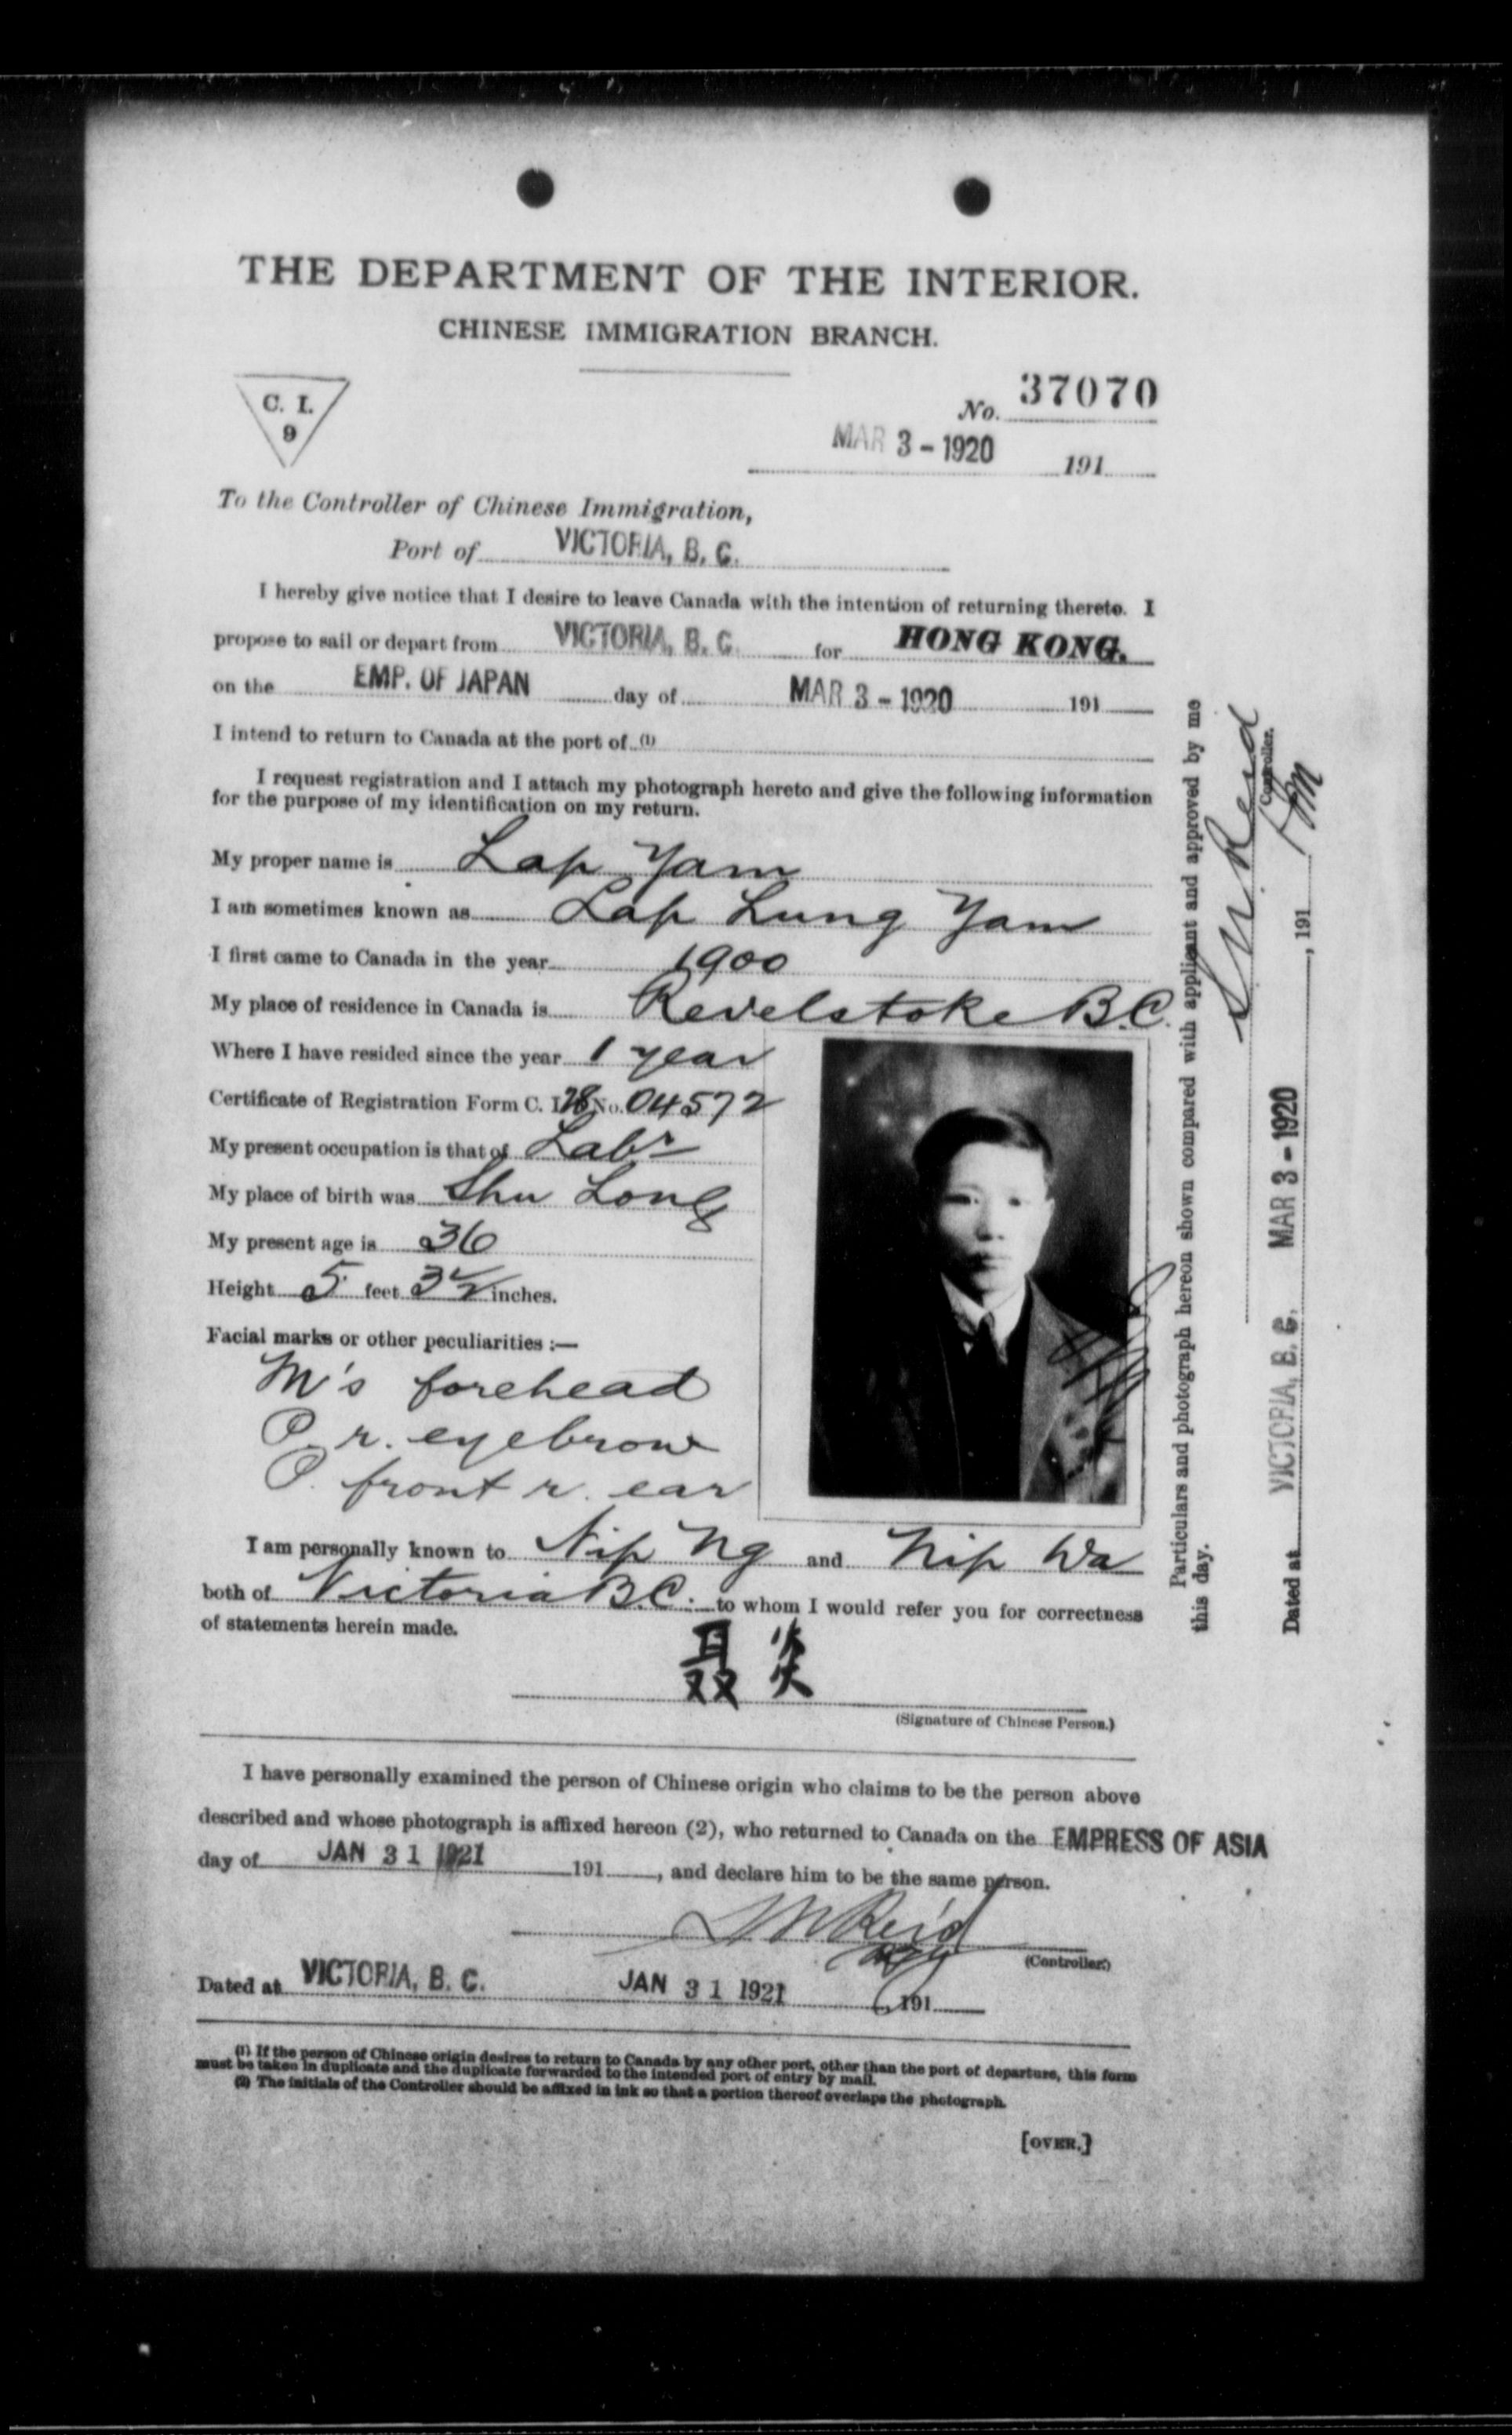 THE DEPARTMENT OF THE INTERIOR.
CHINESE IMMIGRATION BRANCH.
C. I.
9
No. 37070
MAR 3 - 1920 191
To the Controller of Chinese Immigration,
Port of VICTORIA, B. C.
I hereby give notice that I desire to leave Canada with the intention of returning thereto. I
propose to sail or depart from VICTORIA, B. C. for HONG KONG.
on the EMP. OF JAPAN day of MAR 3 - 1920 191
I intend to return to Canada at the port of (1)
I request registration and I attach my photograph hereto and give the following information
for the purpose of my identification on my return.
My proper name is Lap Yam
I am sometimes known as Lap Lung Yam
I first came to Canada in the year 1900
My place of residence in Canada is Revelstoke B.C.
Where I have resided since the year 1 year
Certificate of Registration Form C. I. 28 No. 04572
My present occupation is that of Labr
My place of birth was Shu Long
My present age is 36
Height 5 feet 3 1/2 inches.
Facial marks or other peculiarities :—
M's forehead
P. r. eyebrow
P. front r. ear
I am personally known to Nip Ng and Nip Wa
both of Victoria B.C. to whom I would refer you for correctness
of statements herein made.
聂炎
(Signature of Chinese Person.)
I have personally examined the person of Chinese origin who claims to be the person above
described and whose photograph is affixed hereon (2), who returned to Canada on the EMPRESS OF ASIA
day of JAN 31 1921 191 , and declare him to be the same person.
(Controller.)
Dated at VICTORIA, B. C. JAN 31 1921 , 191
(1) If the person of Chinese origin desires to return to Canada by any other port, other than the port of departure, this form
must be taken in duplicate and the duplicate forwarded to the intended port of entry by mail.
(2) The initials of the Controller should be affixed in ink so that a portion thereof overlaps the photograph.
[OVER.]
Particulars and photograph hereon shown compared with applicant and approved by me
this day.
Controller.
Dated at VICTORIA, B. C. MAR 3 - 1920 , 191